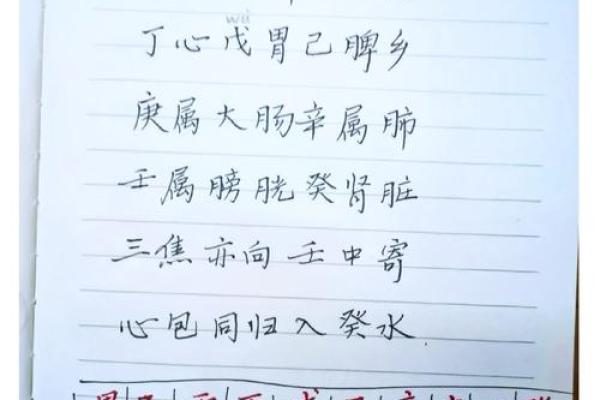 wù
丁心戊胃己脾乡
庚属大肠辛属肺
壬属膀胱癸肾脏
三焦亦向壬中寄
心包同归入癸水.